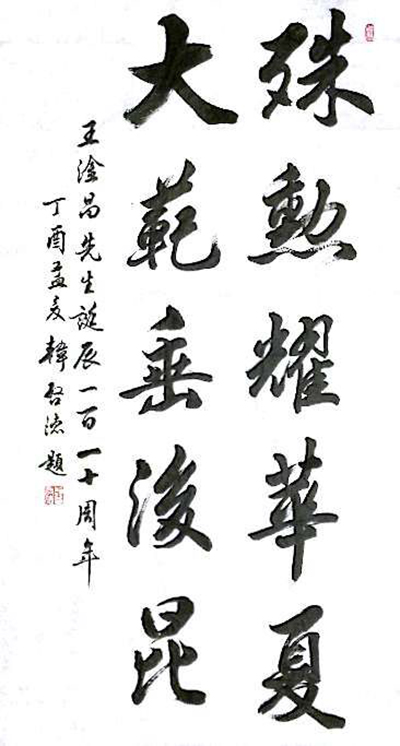 殊勳耀華夏
大範垂後昆
王淦昌先生誕辰一百一十周年
丁酉孟夏韓啓德題